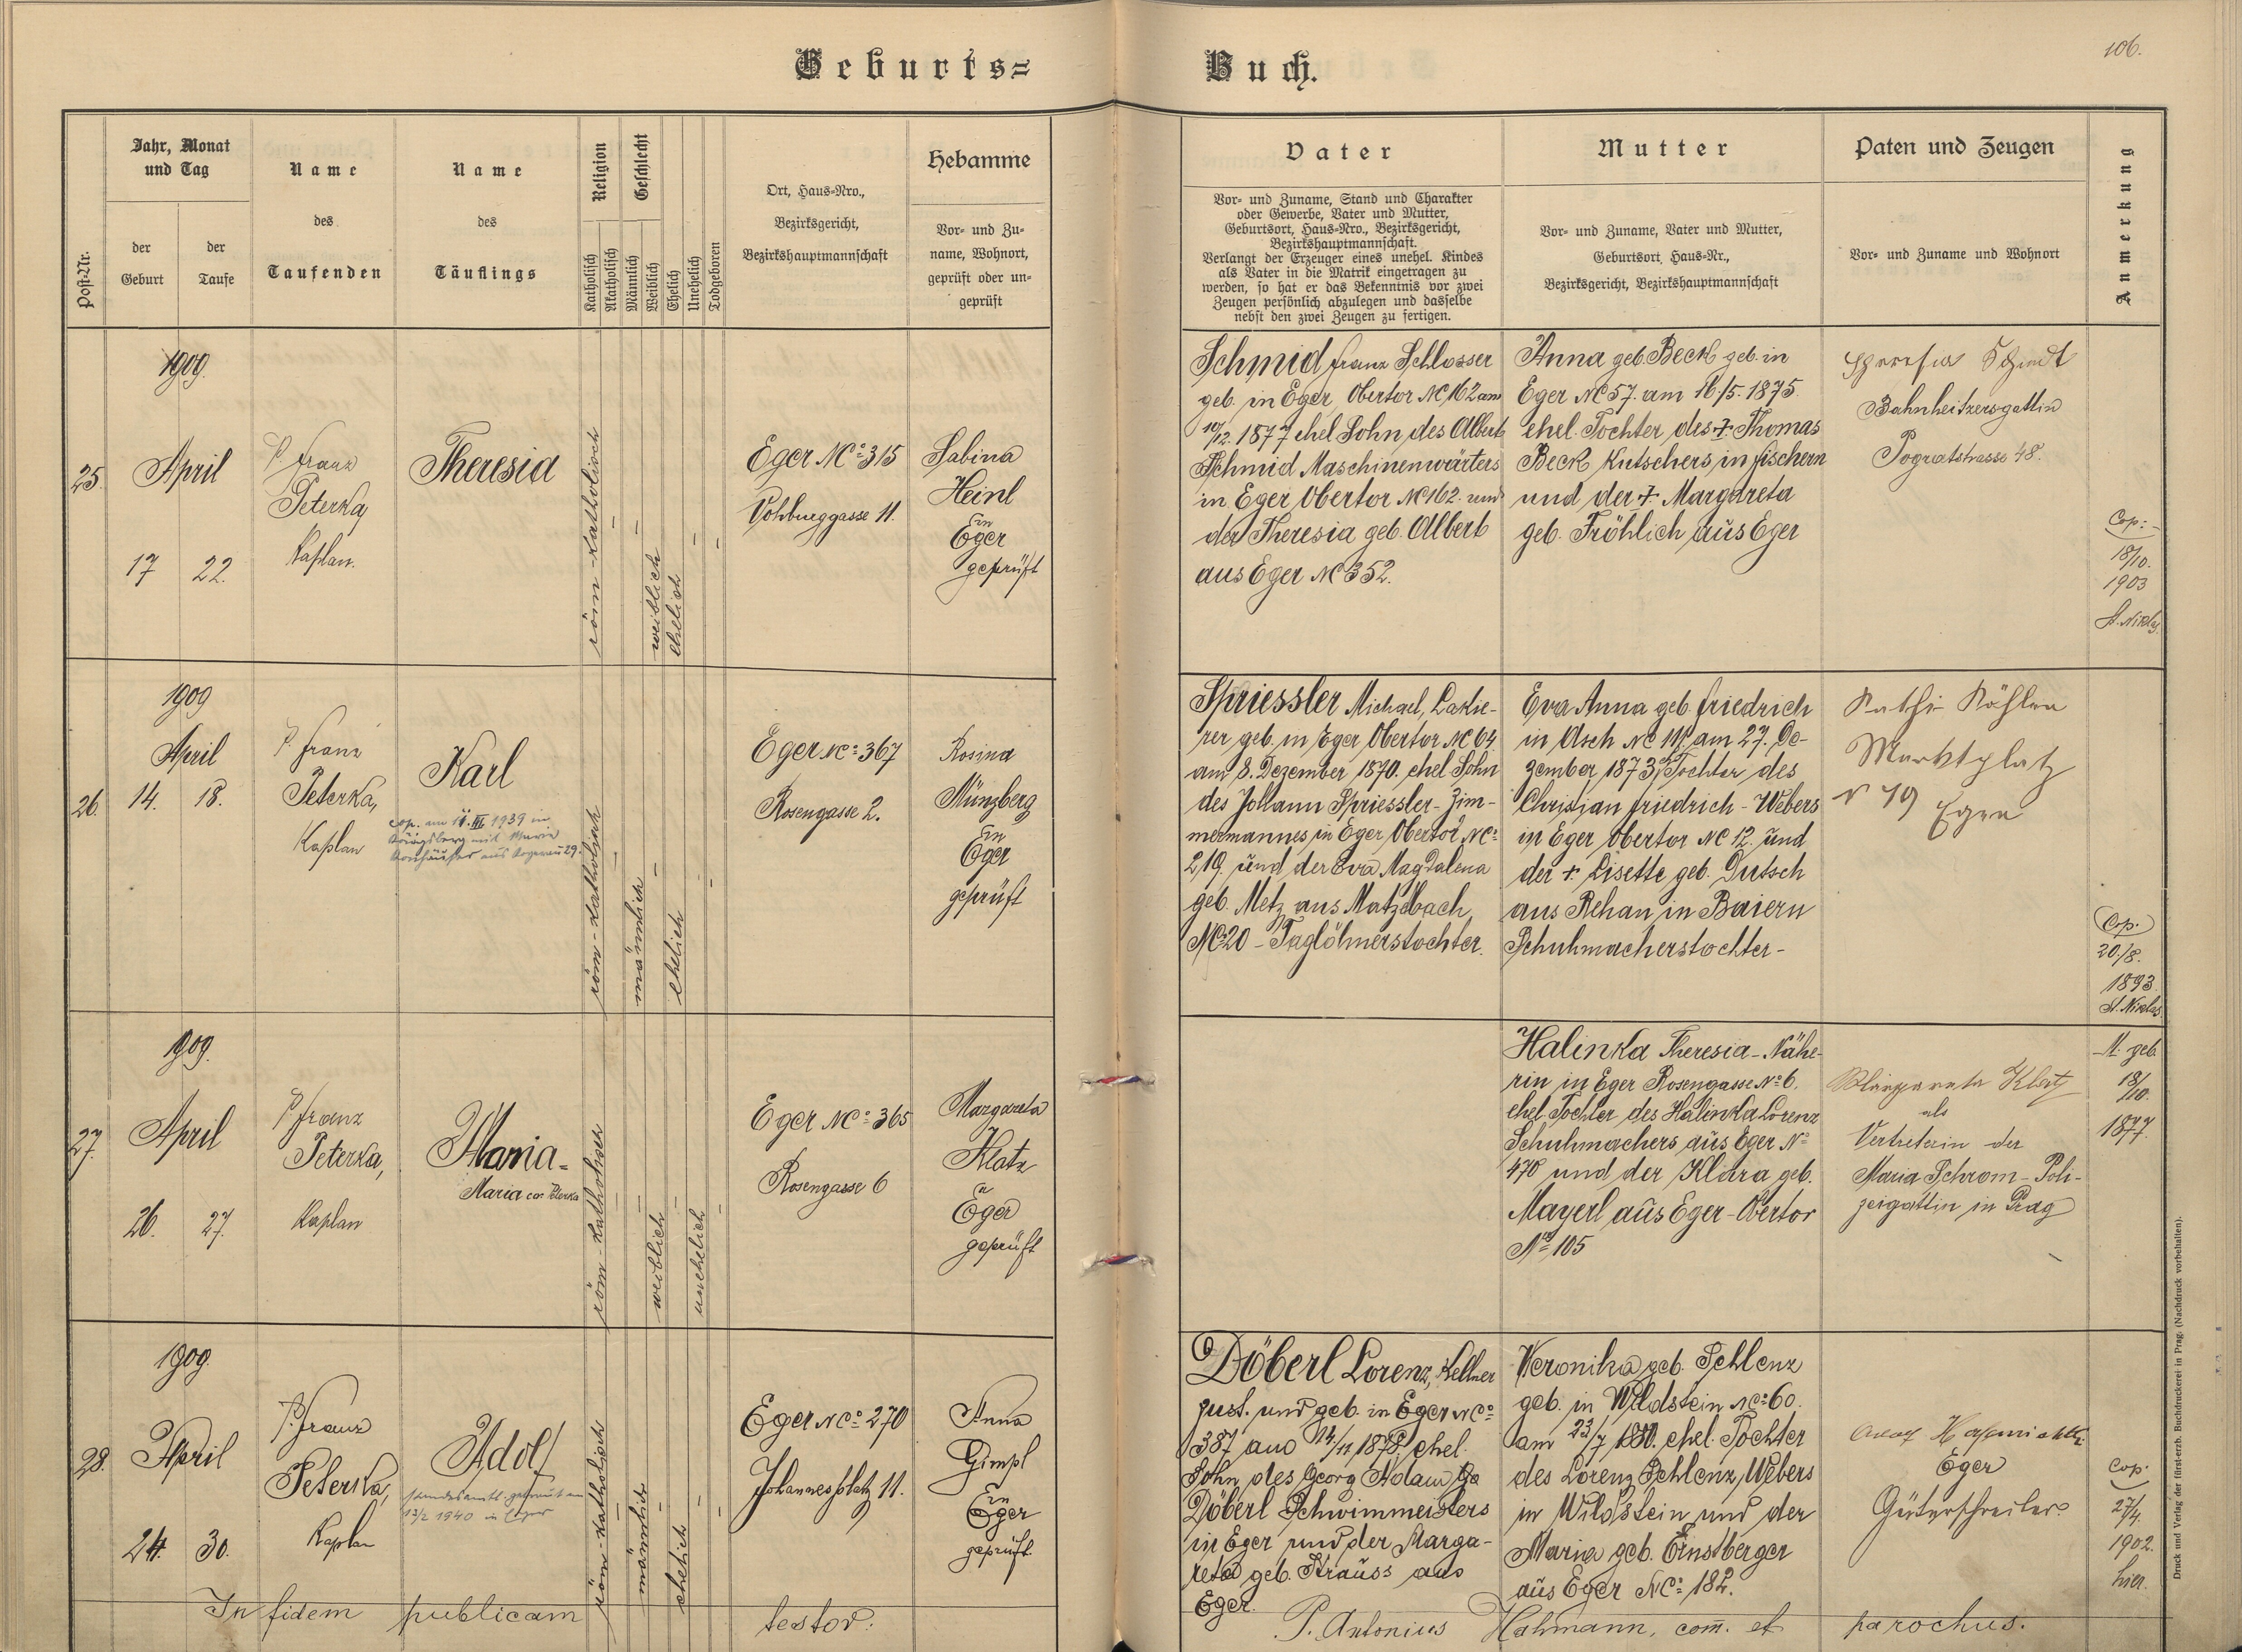 106.
Geburts=
Buch.
Post-Nr.
Jahr, Monat
und Tag
der
Geburt
der
Taufe
Name
des
Taufenden
Name
des
Täuflings
Religion
Katholisch
Akatholisch
Geschlecht
Männlich
Weiblich
Ehelich
Unehelich
Todgeboren
Ort, Haus-Nro.,
Bezirksgericht,
Bezirkshauptmannschaft
Hebamme
Vor- und Zu-
name, Wohnort,
geprüft oder un-
geprüft
Vater
Vor- und Zuname, Stand und Charakter
oder Gewerbe, Vater und Mutter,
Geburtsort, Haus-Nro., Bezirksgericht,
Bezirkshauptmannschaft.
Verlangt der Erzeuger eines unehel. Kindes
als Vater in die Matrik eingetragen zu
werden, so hat er das Bekenntnis vor zwei
Zeugen persönlich abzulegen und dasselbe
nebst den zwei Zeugen zu fertigen.
Mutter
Vor- und Zuname, Vater und Mutter,
Geburtsort, Haus-Nr.,
Bezirksgericht, Bezirkshauptmannschaft
Paten und Zeugen
Vor- und Zuname und Wohnort
Anmerkung
25.
1909.
April
17
22.
P. Franz
Peterka
Kaplan.
Theresia
röm-katholisch
weiblich
ehelich
Eger Nc: 315
Vohburggasse 11.
Sabina
Heinl
in
Eger
geprüft
Schmid Franz Schlosser
geb. in Eger Obertor Nc 162 am
10/12. 1877 ehel Sohn des Albert
Schmid Maschinenwärters
in Eger Obertor Nc 162. und
der Theresia geb. Albert
aus Eger Nc 352.
Anna geb. Beck geb. in
Eger Nc 57. am 16./5. 1875.
ehel. Tochter des + Thomas
Beck Kutschers in Fischern
und der + Margareta
geb. Fröhlich aus Eger
Theresia Schmidt
Bahnheitzersgattin
Pogratstrasse 48.
Cop:
18/10.
1903
St. Niklas
26.
1909
April
14.
18.
P. Franz
Peterka,
Kaplan
Karl
cop. am 11. III. 1939 in
Königsberg mit Maria
röm-katholisch
männlich
ehelich
Eger Nc: 367
Rosengasse 2.
Rosina
Münzberg
in
Eger
geprüft
Spriessler Michael, Lakie-
rer geb. in Eger Obertor Nc 64
am 8. Dezember 1870. ehel Sohn
des Johann Spriessler - Zim-
mermannes in Eger Obertor Nc:
219. und der Eva Magdalena
geb. Metz aus Matzelbach,
Nc: 20 - Taglöhnerstochter.
Eva Anna geb. Friedrich
in Asch Nc 111 am 27. De-
zember 1873, Tochter des
Christian Friedrich - Webers
in Eger Obertor Nc 12. und
der +. Lisette geb. Dutsch
aus Rehau in Baiern
Schuhmacherstochter -
Kathi Köhler
Marktplatz
Eger
Cop.
20./8.
1893.
St. Niklas
27.
1909.
April
26.
27.
P. Franz
Peterka,
Kaplan
Maria -
Maria
röm-katholisch
weiblich
unehelich
Eger Nc: 365
Rosengasse 6
Margareta
Klatz
in
Eger
geprüft
Halinka Theresia - Nähe-
rin in Eger Rosengasse No 6.
ehel. Tochter des Halinka Lorenz
Schuhmachers aus Eger No
470 und der Klara geb.
Mayerl aus Eger - Obertor
No 105
Margareta Klatz
als
Vertreterin der
Maria Schrom - Poli-
zeigattin in Prag
M. geb.
18/10.
1877.
28.
1909.
April
24.
30.
P. Franz
Peterka,
Kaplan
Adolf
standesamtl. getraut am
13/2 1940 in Eger
röm-katholisch
männlich
ehelich
Eger Nc: 270
Johannesplatz 11.
Anna
Gimpl
in
Eger
geprüft.
Döberl Lorenz, Kellner
zust. und geb. in Eger Nc:
387 am 14/12 1878. ehel.
Sohn des Georg Adam
Döberl Schwimmeisters
in Eger und der Marga-
reta geb. Strauss aus
Eger.
Veronika geb. Schlenz
geb. in Wildstein Nc: 60.
am 23/7 1880. ehel. Tochter
des Lorenz Schlenz, Webers
in Wildstein und der
Maria geb. Ernstberger
aus Eger Nc: 182.
Adolf
Eger
Güterschreiber
Cop.
27/4.
1902.
hier.
In fidem publicam testor:
P. Antonius Hahmann, com. et parochus.
Druck und Verlag der fürst-erzb. Buchdruckerei in Prag. (Nachdruck vorbehalten).